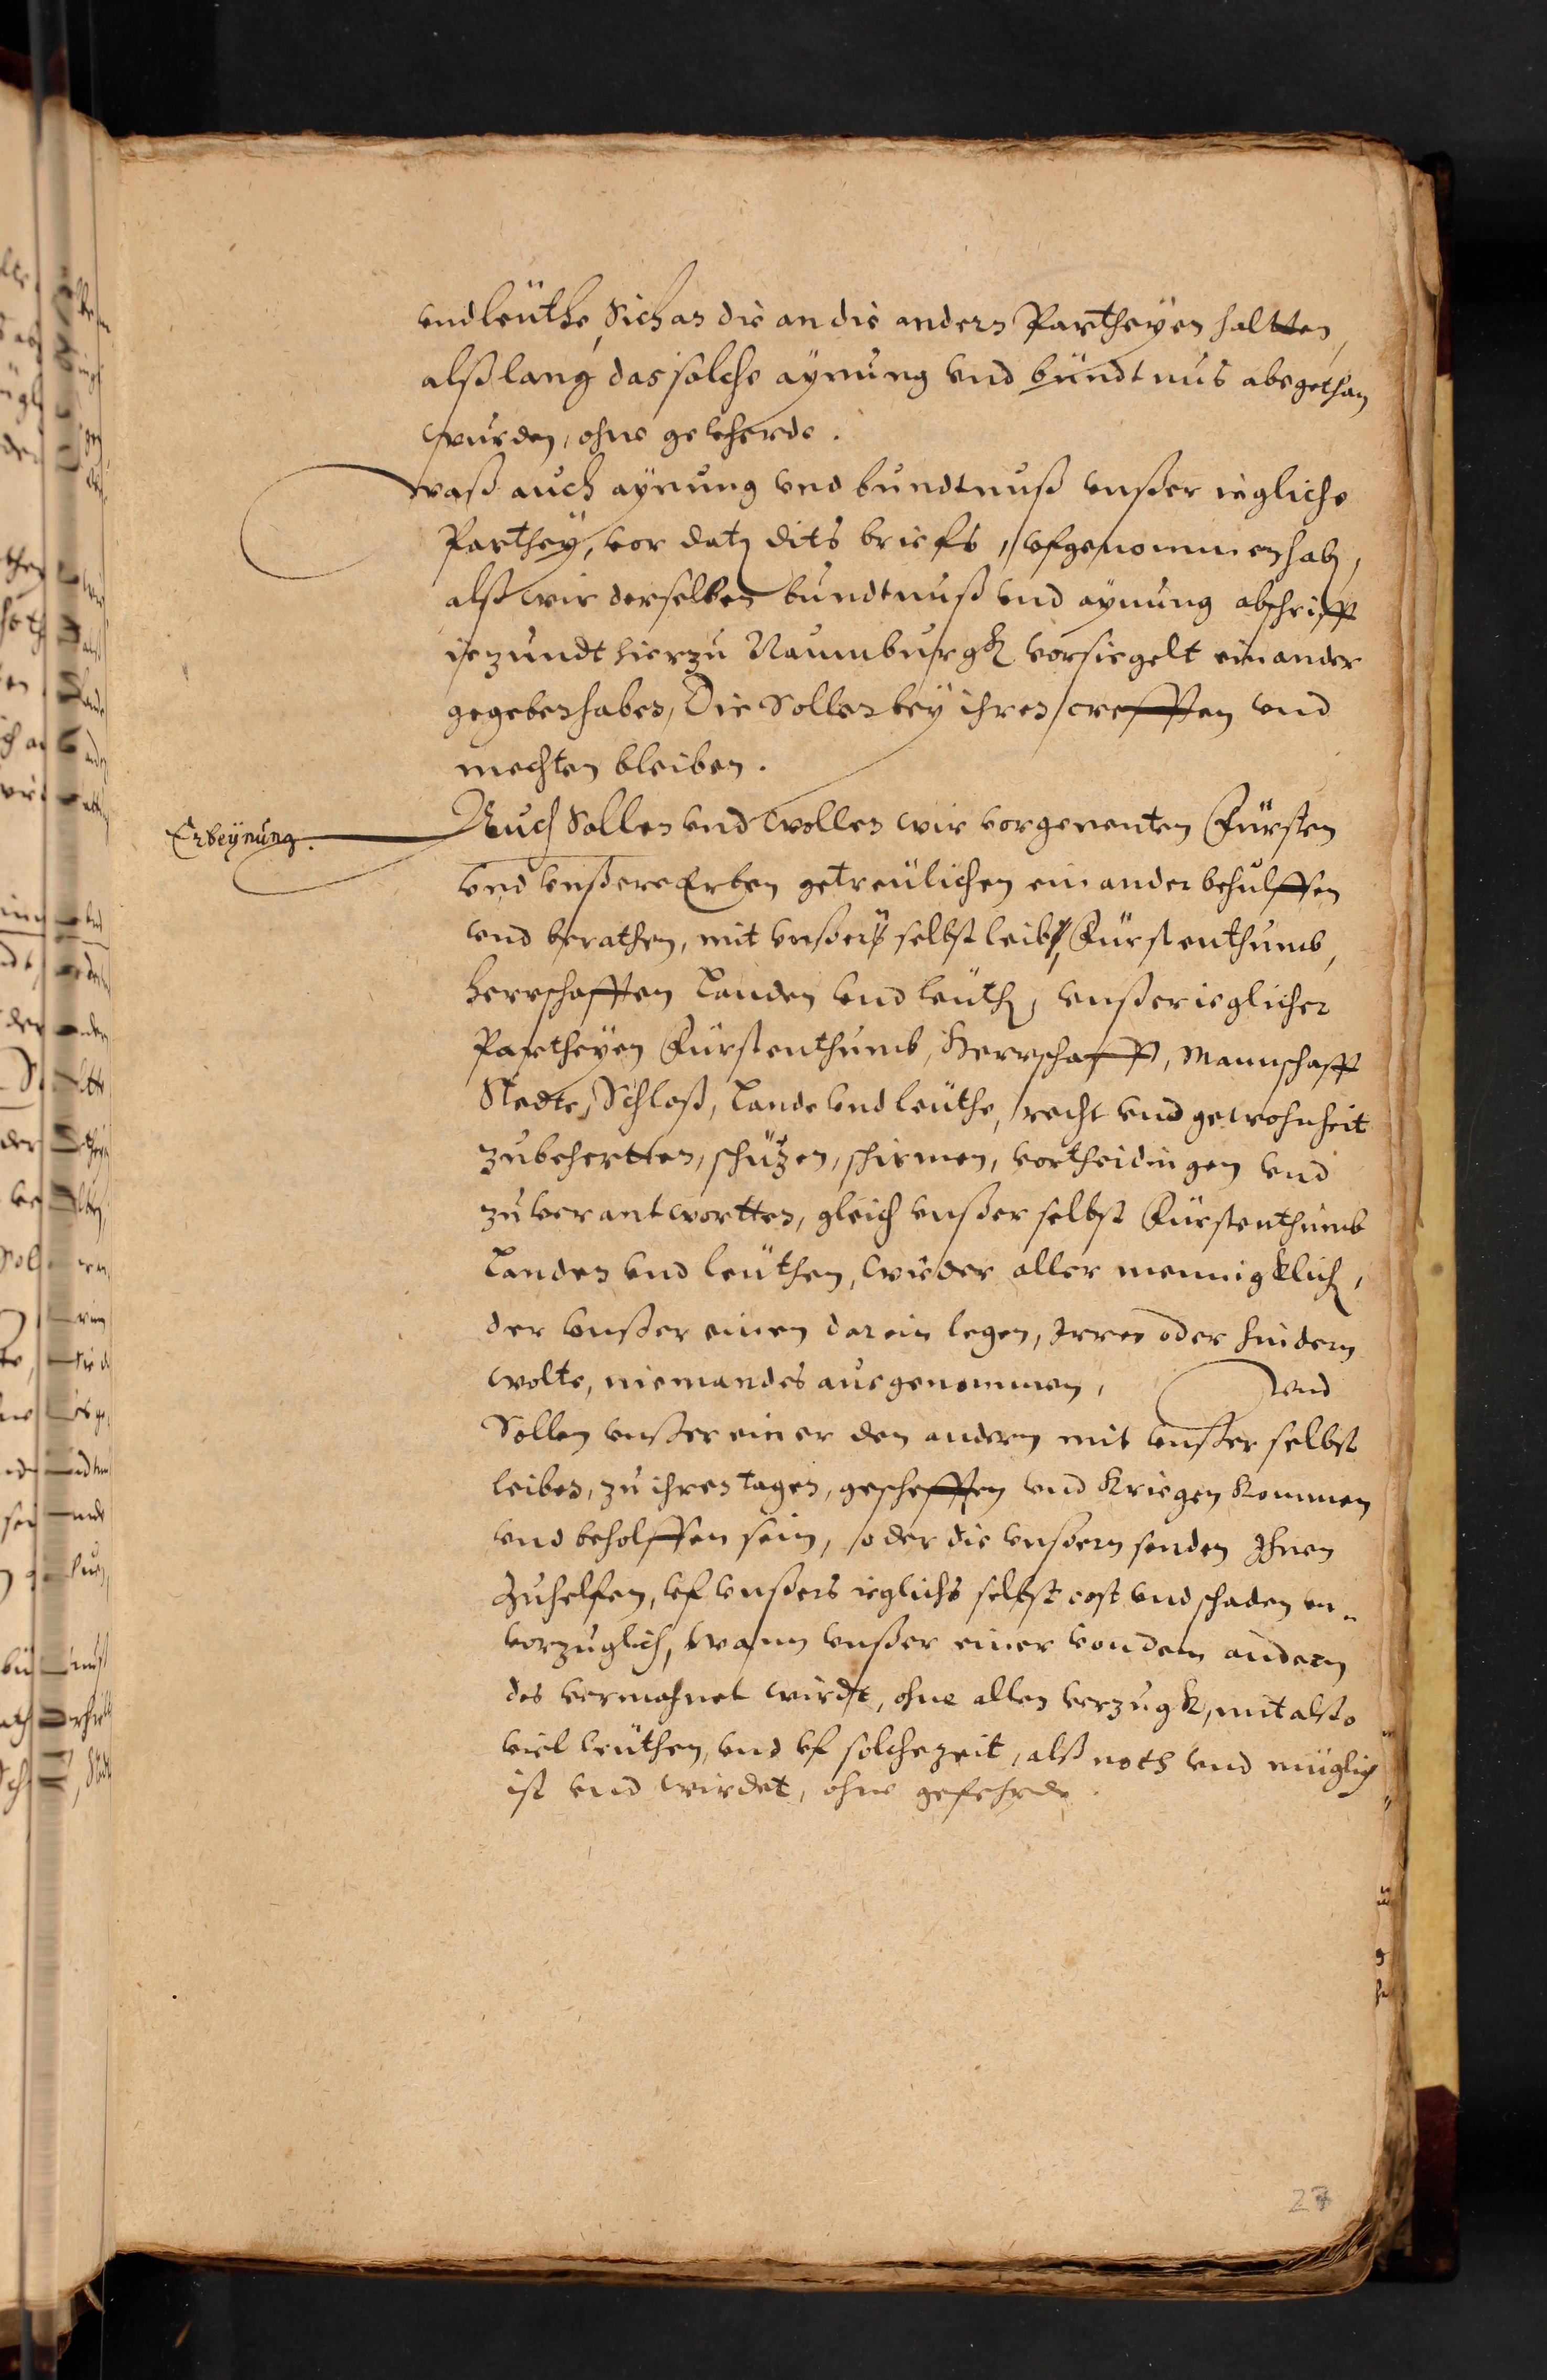 vnd leüthe, Sich an die an die andern Partheyen haltten,
alß lang das solche aynung vnd bündtnus abegethan
wurden, ohne geuherde.
waß auch aynung vnd bundtnuß vnßer iegliche
Parthey, vor datj dits briefs, vfgenommen hab,
alß wir derselben bundtnuß vnd aynung abschrifft
iezundt hier zu Naumburgk vorsiegelt einander
gegeben haben, Die Sollen bey ihren creffften vnd
mechten bleiben.
Erbeynung.
Auch Sollen vnd wollen wir vorgenenten Fürsten
vnd vnßere Erben getreülichen einander behulffen
vnd berathen, mit vnßers selbst leib, Fürstenthumb,
herrschafften Landen vnd leüth, vnßer ieglicher
Partheyen Fürstenthumb, Herrschafft, Mannschafft
Stedte, Schloß, Lande vnd leüthe, recht vnd gewohnheit
zubehertten, schützen, schirmen, vortheidingen vnd
zu verantwortten, gleich vnßer selbst Fürstenthumb
Landen vnd leüthen, wieder aller mennigklich,
der vnßer einen darein legen, Irren oder hindern
wolte, niemandes ausgenommen, vnd
Sollen vnßer einer den andern mit vnßer selbst
leiben, zu ihren tagen, geschefften vnd Kriegen Kommen
vnd beholffen sein, oder die vnßern senden Ihnen
Zuhelfen, vf vnßers ieglichs selbst cost vnd schaden vn-
vorzuglich, wann vnßer einer von dem andern
des vermahnet wirdt, ohne allen verzugk, mit also
viel leüthen, vnd vf solche zeit, alß noth vnd müglich
ist vnd wirdet, ohne gefehrde.
27